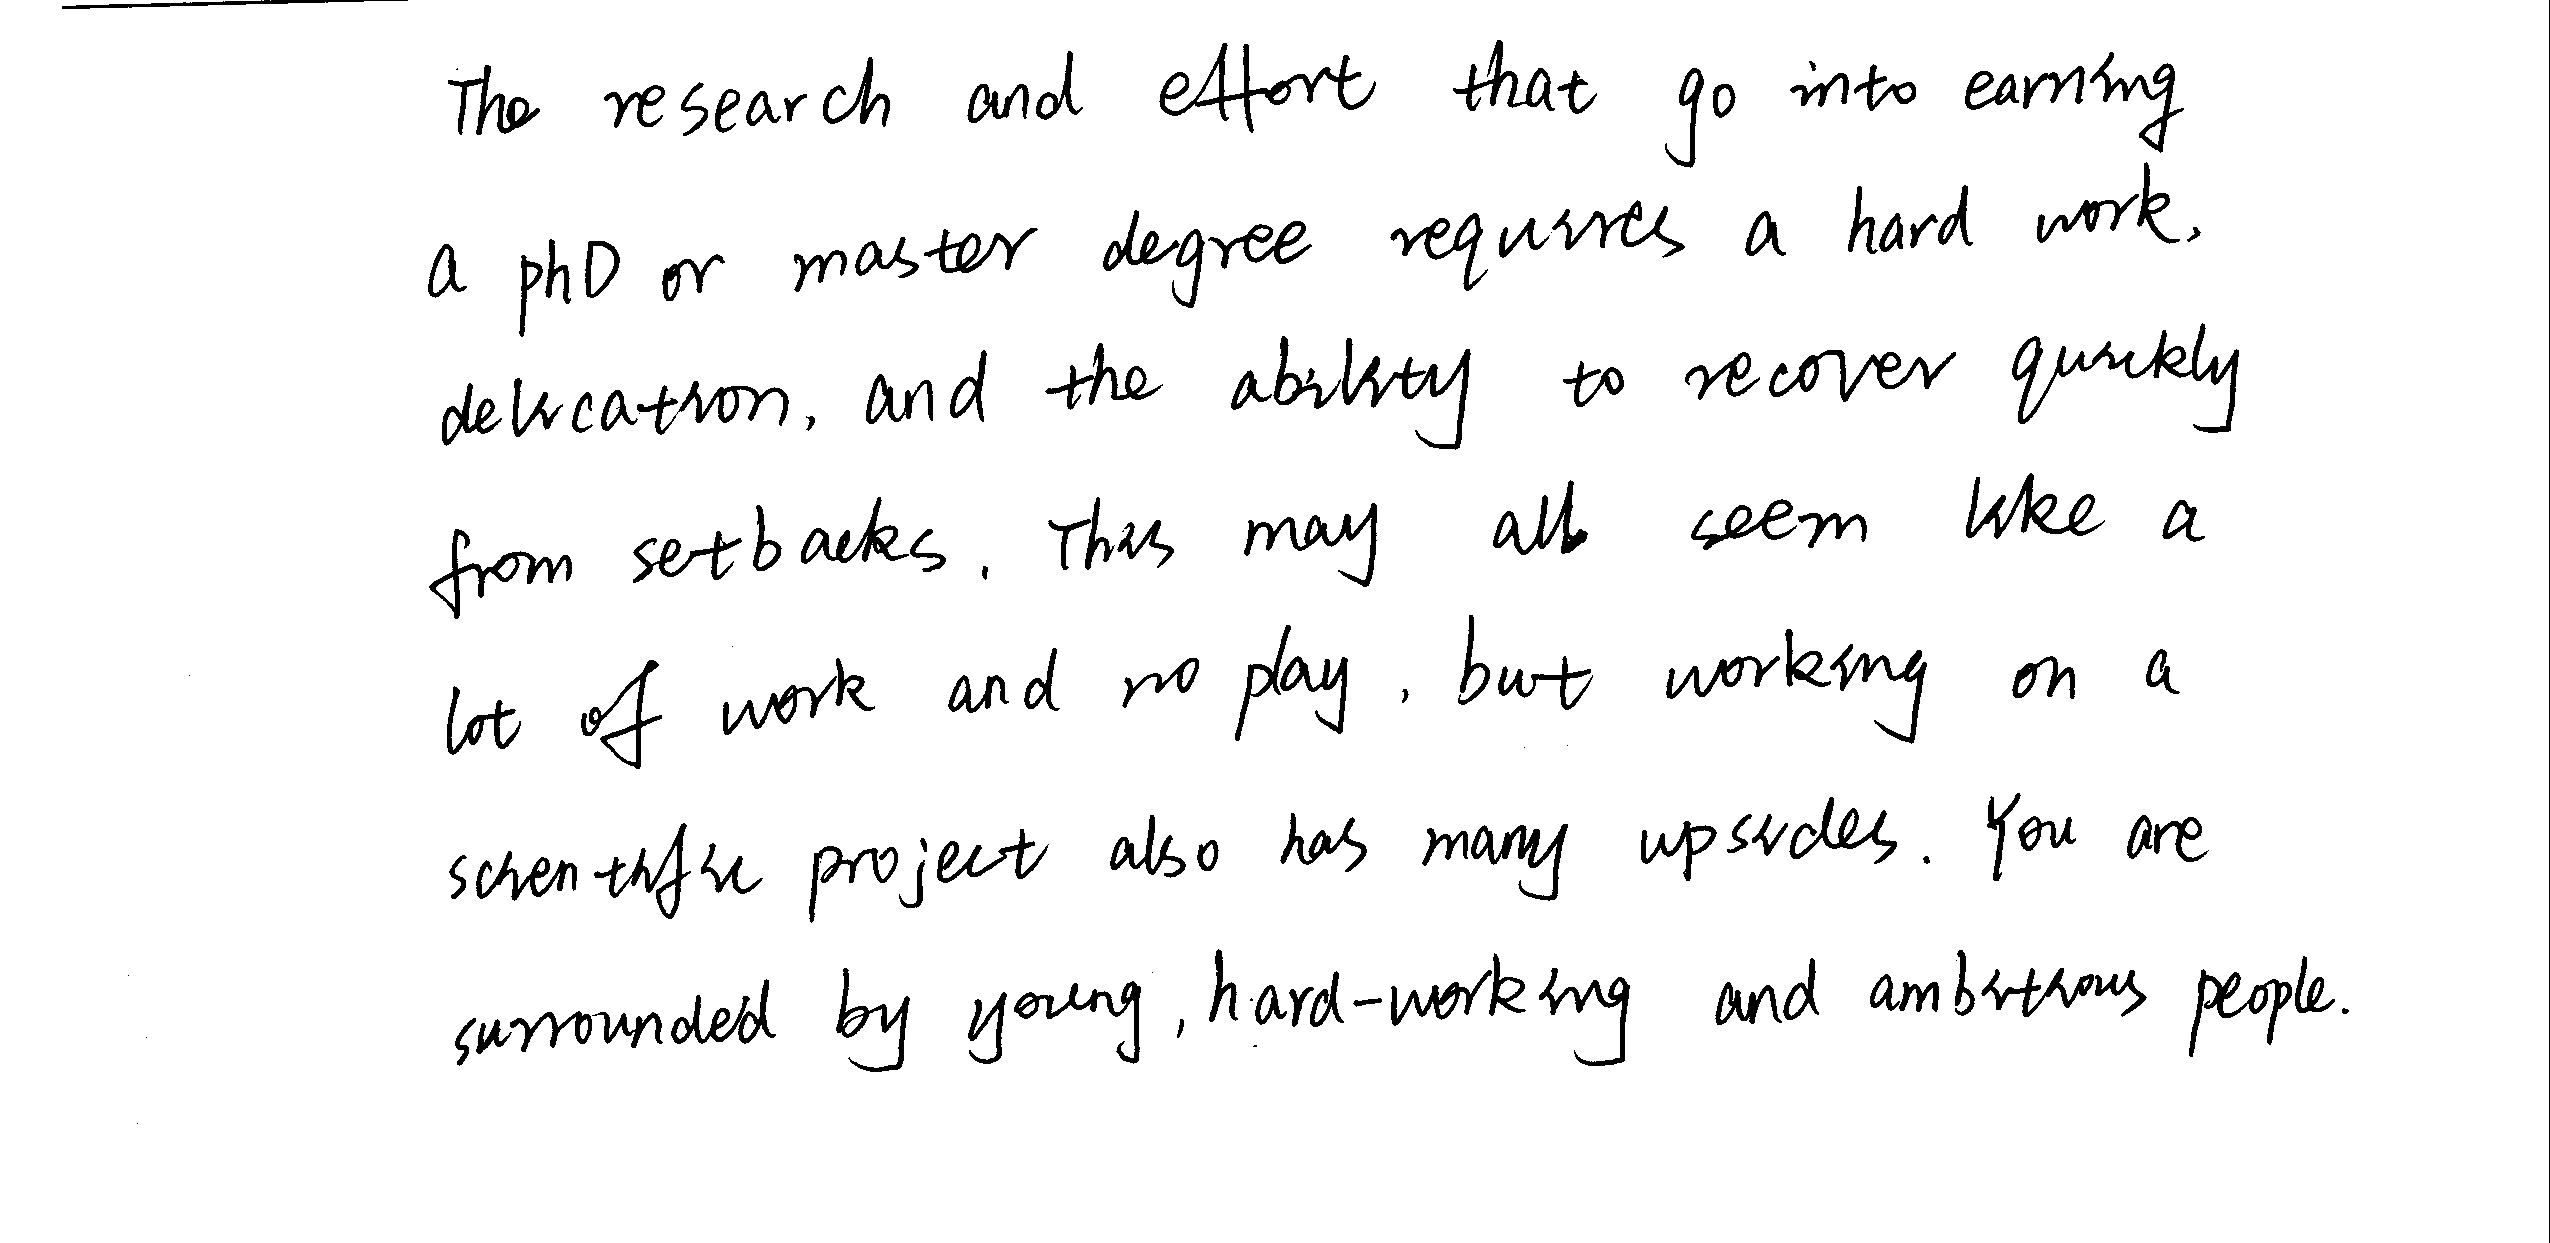 The research and effort that go into earning
a phD or master degree requires a hard work,
delication, and the ability to recover quickly
from setbacks. This may all seem like a
lot of work and no play, but working on a
scientific project also has many upsides. You are
surrounded by young, hard-working and ambitious people.